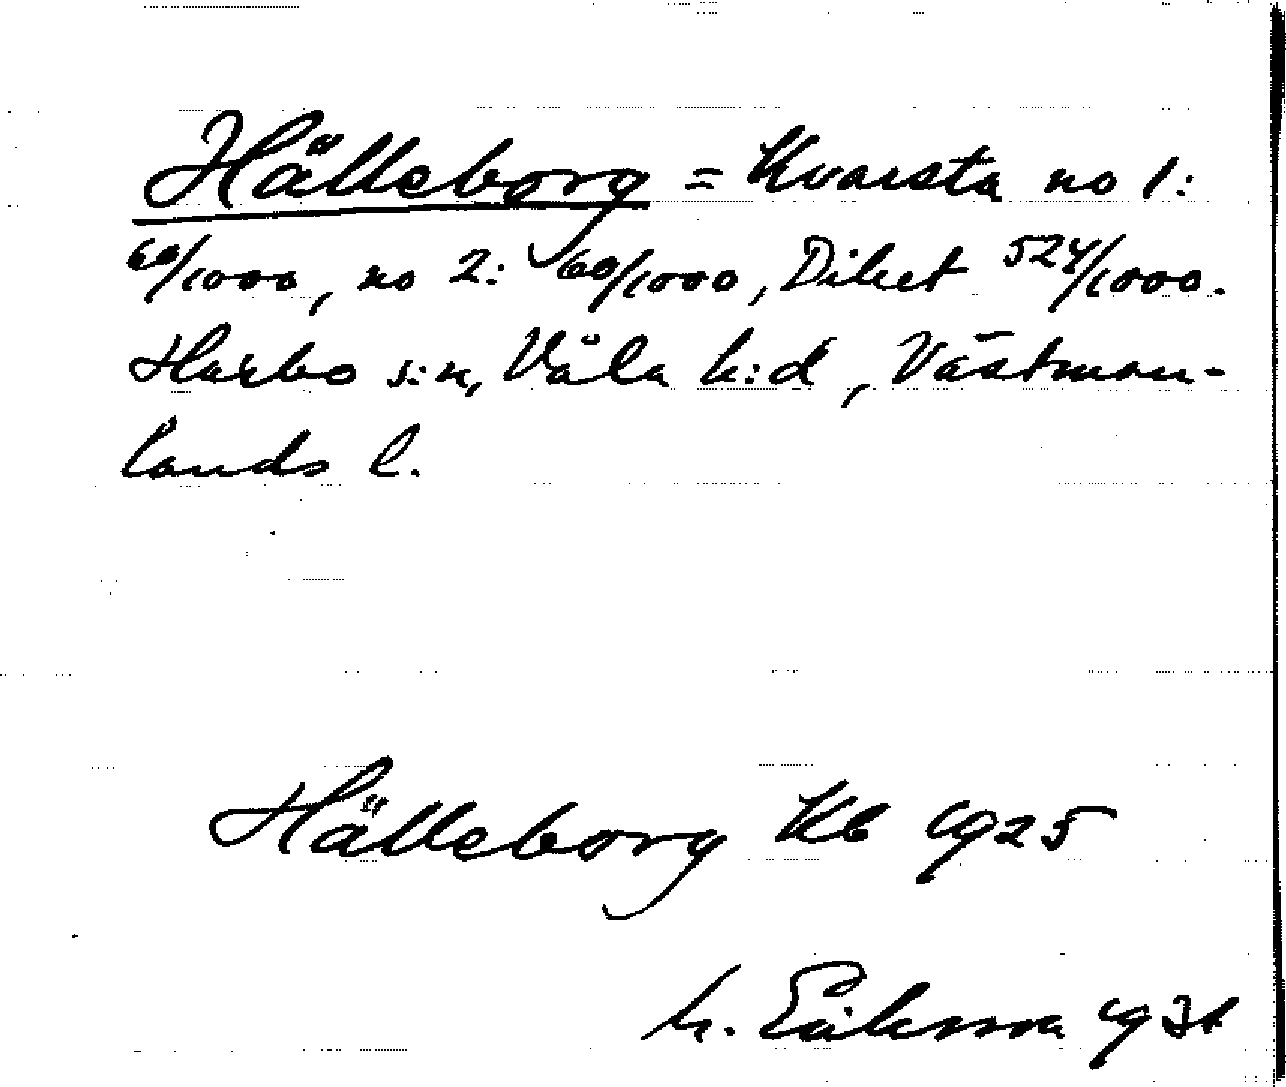 Hälleborg = Kvarsta no 1:
60/1000, no 2: 60/1000, Diket 524/1000.
Harbo s:n, Våla h:d, Västman-
lands l.
Hälleborg Kb 1925
Eriksson